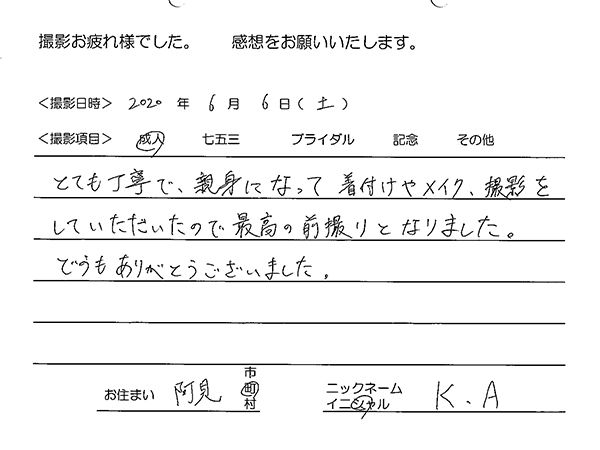 撮影お疲れ様でした。 感想をお願いいたします。
<撮影日時> 2020 年 6 月 6 日(土)
<撮影項目> 成人 七五三 ブライダル 記念 その他
とても丁寧で、親身になって着付けやメイク、撮影を
していただいたので最高の前撮りとなりました。
どうもありがとうございました。
お住まい 阿見 市町村
ニックネーム
イニシャル K.A